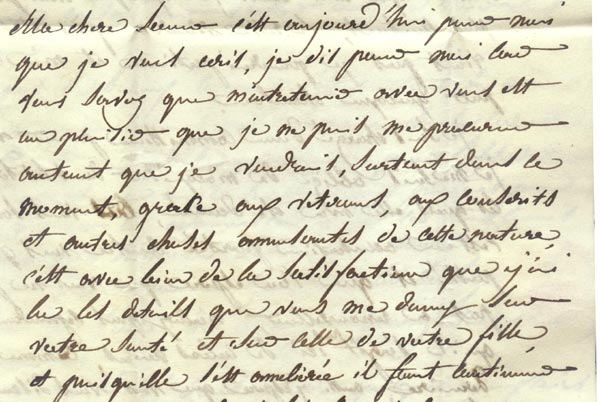 Ma chere Soeur c'est aujourd'hui pour moi
que je vous ecris, je dis pour moi car
vous savez que m'entretenir avec vous est
un plaisir que je ne puis me procurer
autant que je voudrais, surtout dans le
moment, grace aux veterans, aux conscrits
et autres choses amusantes de cette nature,
c'est avec bien de la satisfaction que j'ai
lu les details que vous me donnez sur
votre santé et sur celle de votre fille
et puisqu'elle s'est ameliorée il faut continuer